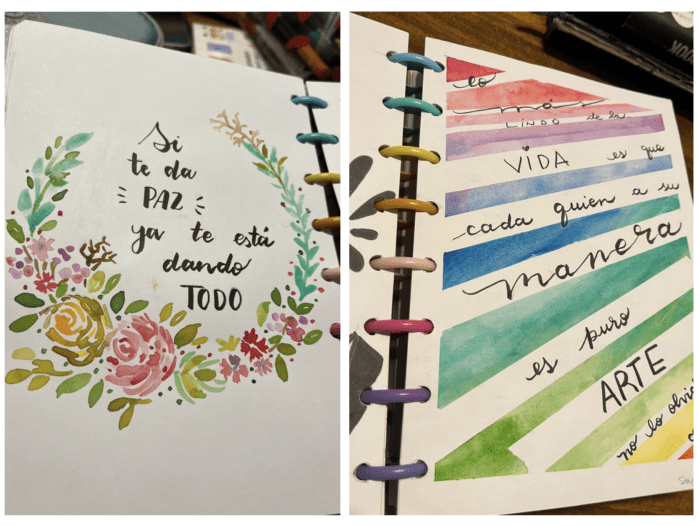 Si
te da
PAZ
ya te está
dando
TODO
lo
más
LINDO de la
VIDA es que
cada quien a su
manera
es puro
ARTE
no lo olvi